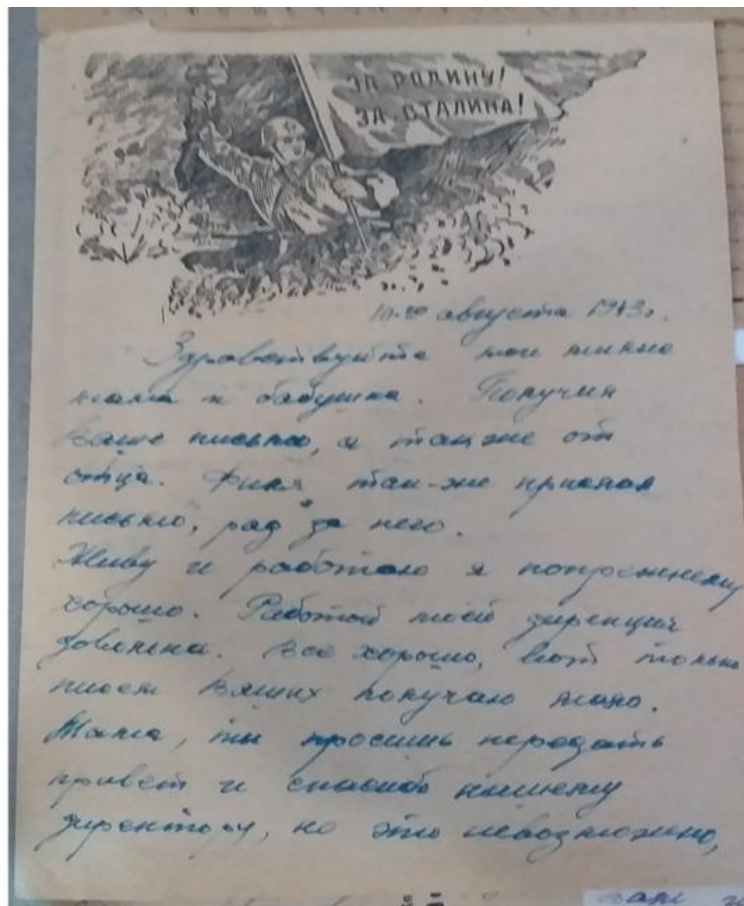 ЗА РОДИНУ!
ЗА СТАЛИНА!
августа 1943г.
Здравствуйте мои милые
мама и бабушка. Получил
Ваше письмо, а также от
отца. Филя так-же прислал
письмо, рад за него.
Живу и работаю я попрежнему
хорошо. Работой моей дирекция
довольна. Все хорошо, вот только
писем Ваших получаю мало.
Мама, ты просишь передать
привет и спасибо нашему
директору, но это невозможно,